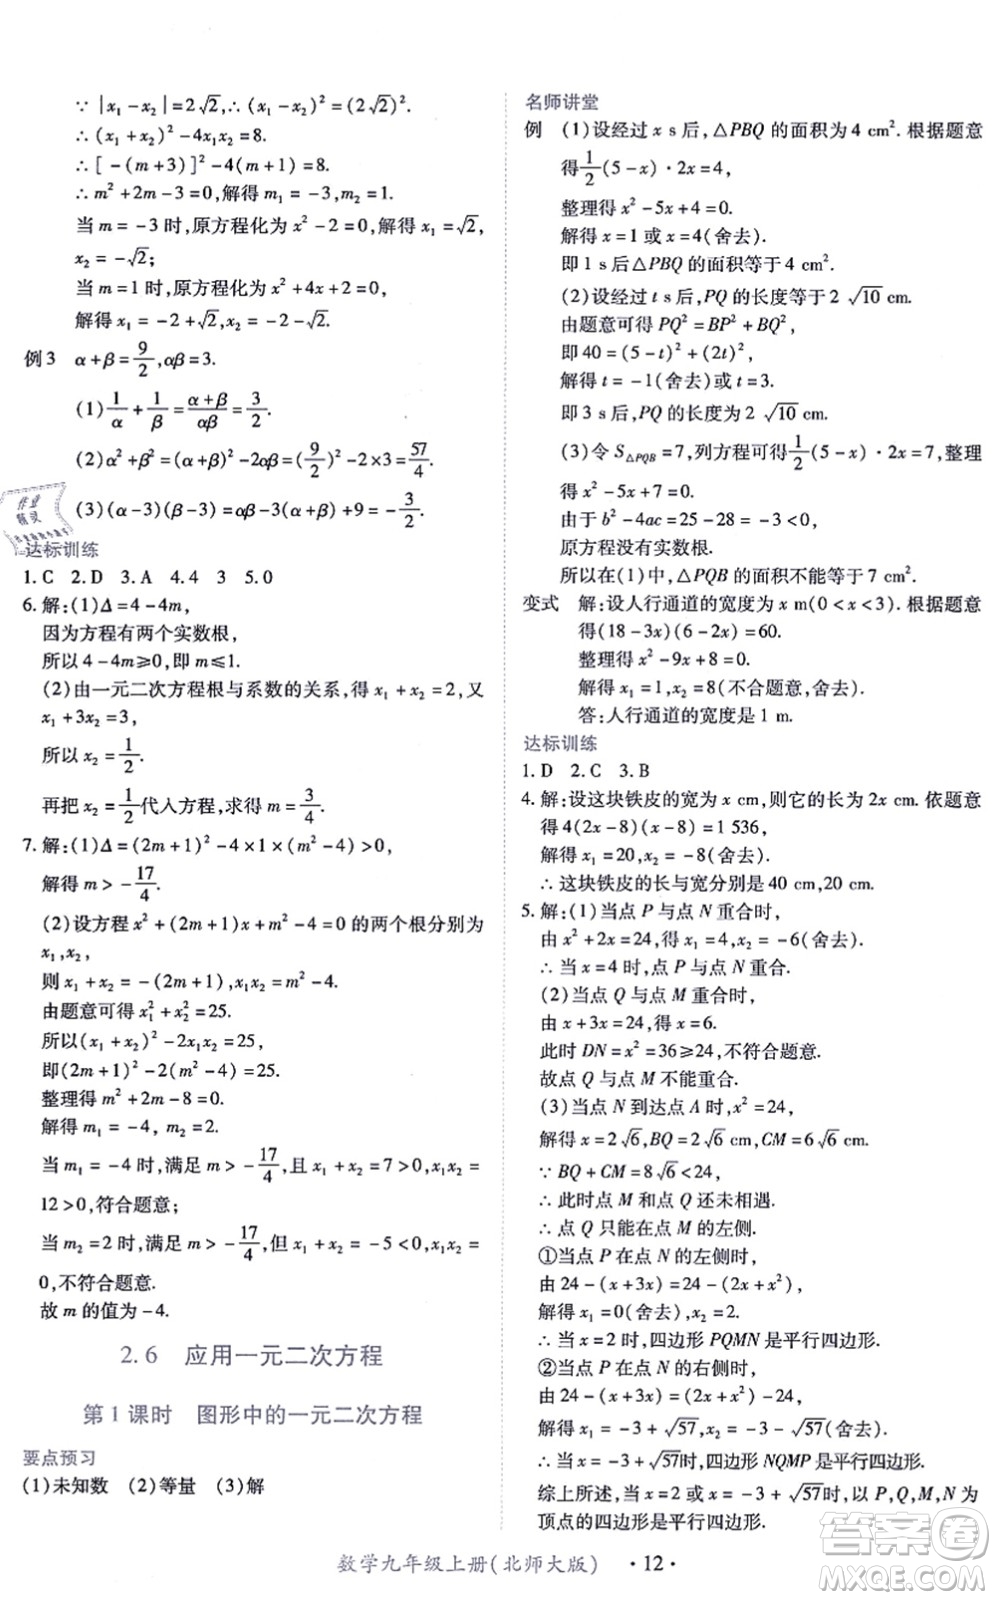 ∵ |x₁-x₂|=2√2,∴(x₁-x₂)²=(2√2)².
∴(x₁+x₂)²-4x₁x₂=8.
∴[-(m+3)]²-4(m+1)=8.
∴m²+2m-3=0,解得 m₁=-3,m₂=1.
当 m=-3 时,原方程化为 x²-2=0,解得 x₁=√2,
x₂=-√2;
当 m=1 时,原方程化为 x²+4x+2=0,
解得 x₁=-2+√2,x₂=-2-√2.
例 3 α+β=9/2,αβ=3.
(1)1/α+1/β=(α+β)/αβ=3/2.
(2)α²+β²=(α+β)²-2αβ=(9/2)²-2×3=57/4.
(3)(α-3)(β-3)=αβ-3(α+β)+9=-3/2.
达标训练
1.C 2.D 3.A 4.4 3 5.0
6.解:(1)Δ=4-4m,
因为方程有两个实数根,
所以 4-4m≥0,即 m≤1.
(2)由一元二次方程根与系数的关系,得 x₁+x₂=2,又
x₁+3x₂=3,
所以 x₂=1/2.
再把 x₂=1/2代入方程,求得 m=3/4.
7.解:(1)Δ=(2m+1)²-4×1×(m²-4)>0,
解得 m>-17/4.
(2)设方程 x²+(2m+1)x+m²-4=0 的两个根分别为
x₁,x₂,
则 x₁+x₂=-(2m+1),x₁x₂=m²-4.
由题意可得 x₁²+x₂²=25.
所以(x₁+x₂)²-2x₁x₂=25,
即(2m+1)²-2(m²-4)=25.
整理得 m²+2m-8=0.
解得 m₁=-4,m₂=2.
当 m₁=-4 时,满足 m>-17/4,且 x₁+x₂=7>0,x₁x₂=
12>0,符合题意;
当 m₂=2 时,满足 m>-17/4,且 x₁+x₂=-5<0,x₁x₂=
0,不符合题意.
故 m 的值为-4.
2.6 应用一元二次方程
第 1 课时 图形中的一元二次方程
要点预习
(1)未知数 (2)等量 (3)解
名师讲堂
例 (1)设经过 x s 后,△PBQ 的面积为 4 cm².根据题意
得1/2(5-x)·2x=4,
整理得 x²-5x+4=0.
解得 x=1 或 x=4(舍去).
即 1 s 后△PBQ 的面积等于 4 cm².
(2)设经过 t s 后,PQ 的长度等于 2√10 cm.
由题意可得 PQ²=BP²+BQ²,
即 40=(5-t)²+(2t)²,
解得 t=-1(舍去)或 t=3.
即 3 s 后,PQ 的长度为 2√10 cm.
(3)令 S△PQB=7,列方程可得1/2(5-x)·2x=7,整理
得 x²-5x+7=0.
由于 b²-4ac=25-28=-3<0,
原方程没有实数根.
所以在(1)中,△PQB 的面积不能等于 7 cm².
变式 解:设人行通道的宽度为 x m(0<x<3).根据题意
得(18-3x)(6-2x)=60.
整理得 x²-9x+8=0.
解得 x₁=1,x₂=8(不合题意,舍去).
答:人行通道的宽度是 1 m.
达标训练
1.D 2.C 3.B
4.解:设这块铁皮的宽为 x cm,则它的长为 2x cm.依题意
得 4(2x-8)(x-8)=1 536,
解得 x₁=20,x₂=-8(舍去).
∴这块铁皮的长与宽分别是 40 cm,20 cm.
5.解:(1)当点 P 与点 N 重合时,
由 x²+2x=24,得 x₁=4,x₂=-6(舍去).
∴当 x=4 时,点 P 与点 N 重合.
(2)当点 Q 与点 M 重合时,
由 x+3x=24,得 x=6.
此时 DN=x²=36≥24,不符合题意.
故点 Q 与点 M 不能重合.
(3)当点 N 到达点 A 时,x²=24,
解得 x=2√6,BQ=2√6 cm,CM=6√6 cm.
∵BQ+CM=8√6<24,
∴此时点 M 和点 Q 还未相遇.
∴点 Q 只能在点 M 的左侧.
①当点 P 在点 N 的左侧时,
由 24-(x+3x)=24-(2x+x²),
解得 x₁=0(舍去),x₂=2.
∴当 x=2 时,四边形 PQMN 是平行四边形.
②当点 P 在点 N 的右侧时,
由 24-(x+3x)=(2x+x²)-24,
解得 x₁=-3+√57,x₂=-3-√57(舍去).
∴当 x=-3+√57时,四边形 NQMP 是平行四边形.
综上所述,当 x=2 或 x=-3+√57时,以 P,Q,M,N 为
顶点的四边形是平行四边形.
数学九年级上册(北师大版) ·12·
作业
精灵
答案圈
MXQE.COM